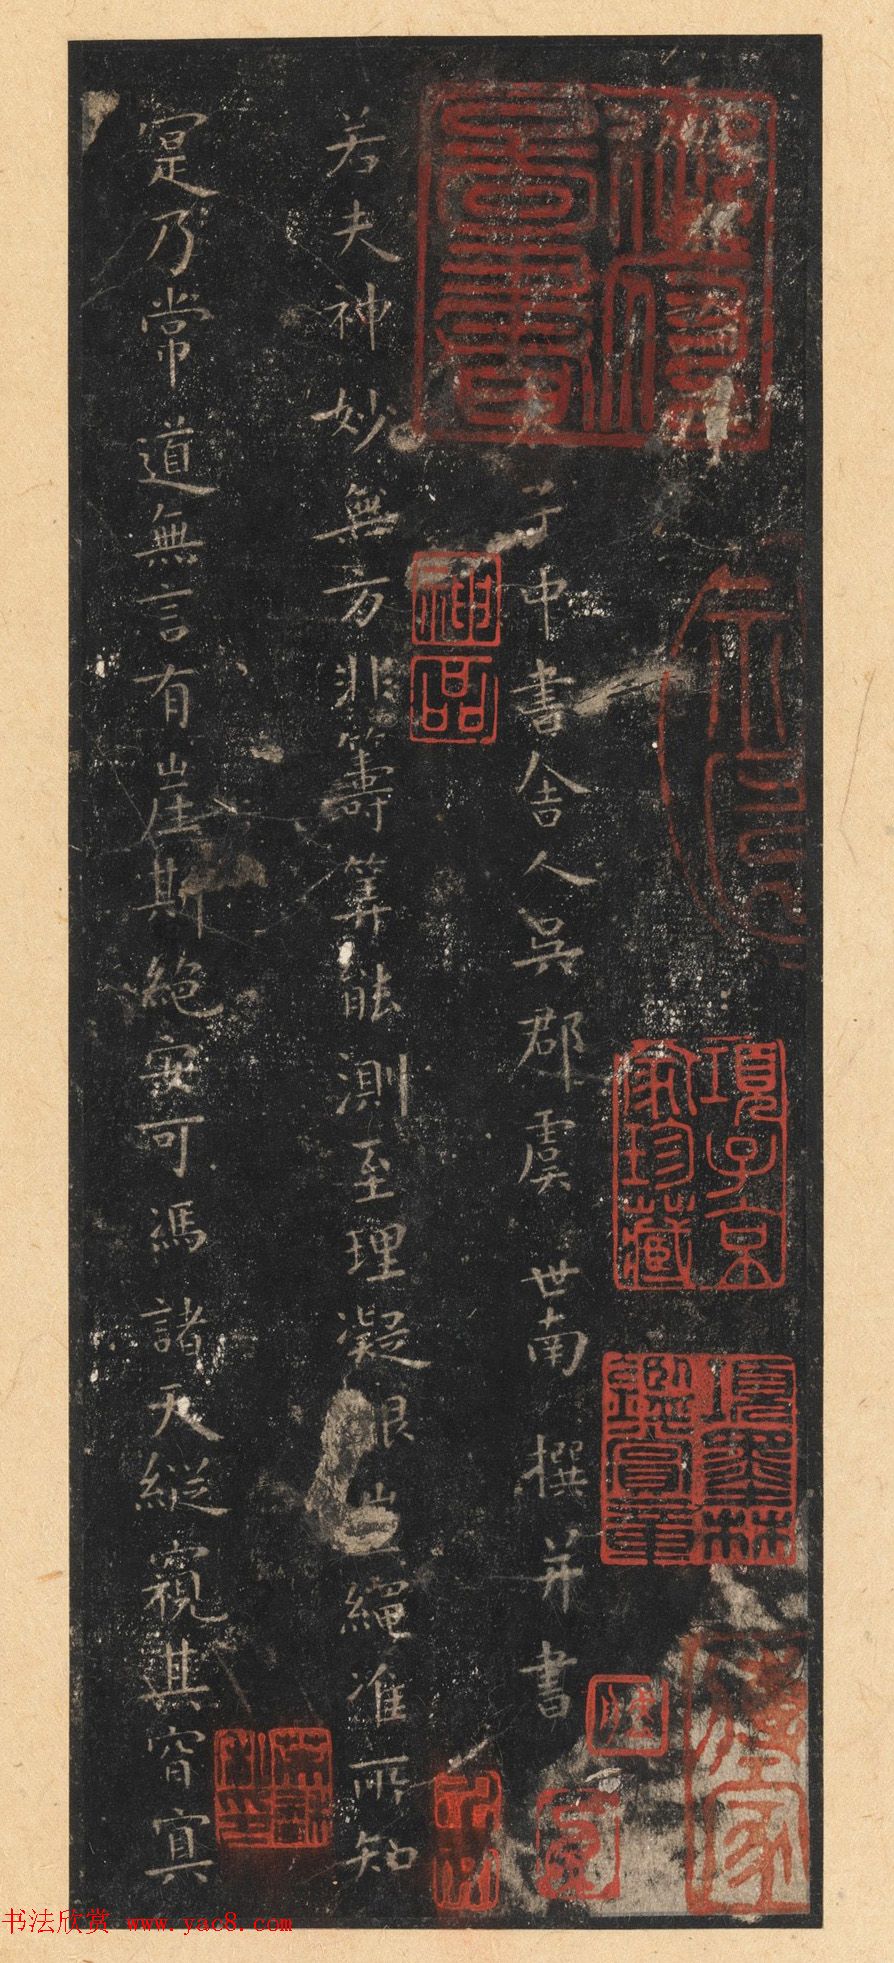 項子京家珍藏
項墨林鑑賞章
子中書舍人吳郡虞世南撰并書
神品
若夫神妙無方非籌筭能測至理凝豈繩准所知
寔乃常道無言有崖斯絕安可馮諸天縱窺其窅冥
书法欣赏 www.yac8.com